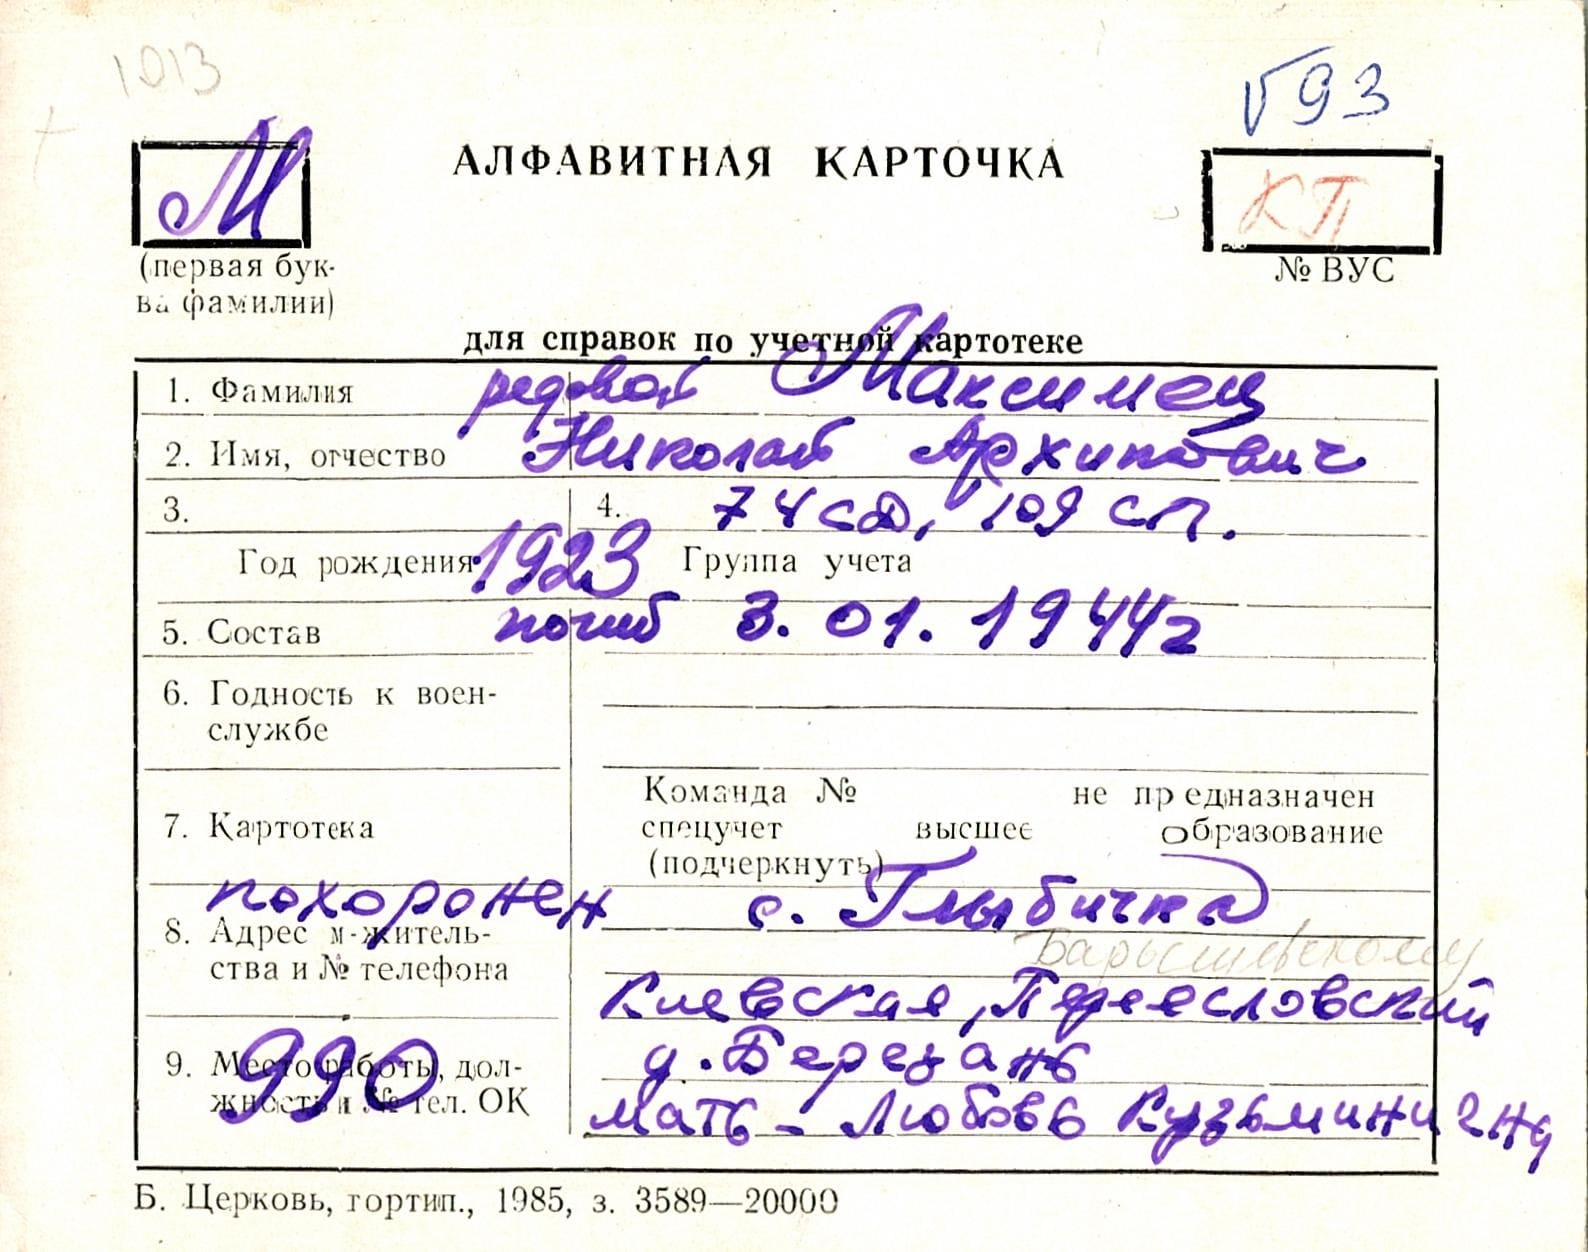 1013
√93
М
АЛФАВИТНАЯ КАРТОЧКА
КП
(первая бук-
ва фамилии)
№ ВУС
для справок по учетной картотеке
1. Фамилия рядовой Максимец
2. Имя, отчество Николай Архипович
3. 4. 74 сд, 109 сп.
Год рождения 1923 Группа учета
5. Состав погиб 3.01.1944г
6. Годность к воен-
службе
Команда № не предназначен
7. Картотека спецучет высшее образование
(подчеркнуть)
похоронен с. Глыбичка
8. Адрес м-житель-
Барышевскому
ства и № телефона
Киевская, Переесловский
9. Место работы, дол- д. Березань
990
жность и № тел. ОК
мать - Любовь Кузьминична
Б. Церковь, гортип., 1985, з. 3589—20000